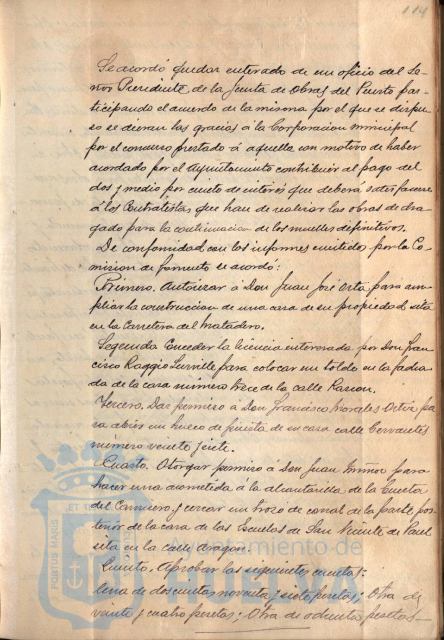 114
Se acordó quedar enterado de un oficio del Se-
ñor Presidente de la Junta de Obras del Puerto par-
ticipando el acuerdo de la misma por el que se dispu-
so se dieran las gracias á la Corporacion municipal
por el concurso prestado á aquella con motivo de haber
acordado por el Ayuntamiento contribuir al pago del
dos y medio por ciento de interés que deberá satisfacerse
á los Contratistas que han de realizar las obras de dra-
gado para la continuacion de los muelles definitivos.
De conformidad con los informes emitidos por la Co-
mision de fomento se acordó:
Primero. Autorizar á Don Juan José Orta para am-
pliar la construccion de una casa de su propiedad sita
en la Carretera del Matadero.
Segunda Conceder la licencia interesada por Don Fran-
cisco Raggio para colocar un toldo en la facha-
da de la casa número trece de la calle Rascon.
Tercero. Dar permiso á Don Francisco Morales Ortiz pa-
ra abrir un hueco de puerta de su casa calle Cervantes
número veinte y siete.
Cuarto. Otorgar permiso á Don Juan Muñoz para
hacer una acometida á la alcantarilla de la Cuesta
del Carnicero, y cercar un trozo de corral de la parte pos-
terior de la casa de las Escuelas de San Vicente de Paul
sita en la calle Aragon.
Quinto. Aprobar las siguientes cuentas:
Una de doscientas noventa y siete pesetas; Otra de
veinte y cuatro pesetas; Otra de ochenta pesetas
Ayuntamiento de
HUELVA
PORTUS MARIS
ET TERRAE